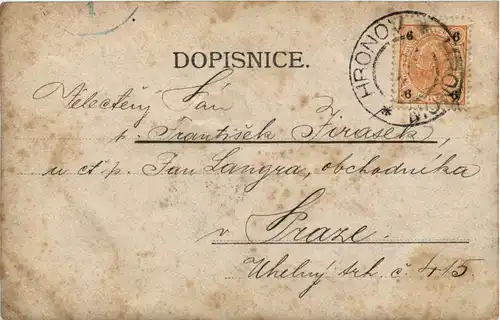 1
6 6
6 6
* HRONOV *
DOPISNICE.
Velectěný Pán
p. František Jirasek,
u ct. p. Jan Langra, obchodníka
v Praze.
Uhelný trh. č. 415.